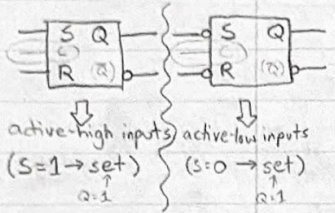 S Q
C
R (Q̅)
active-high inputs
(S=1→set)
Q=1
S Q
C
R (Q̅)
active-low inputs
(S=0→set)
Q=1